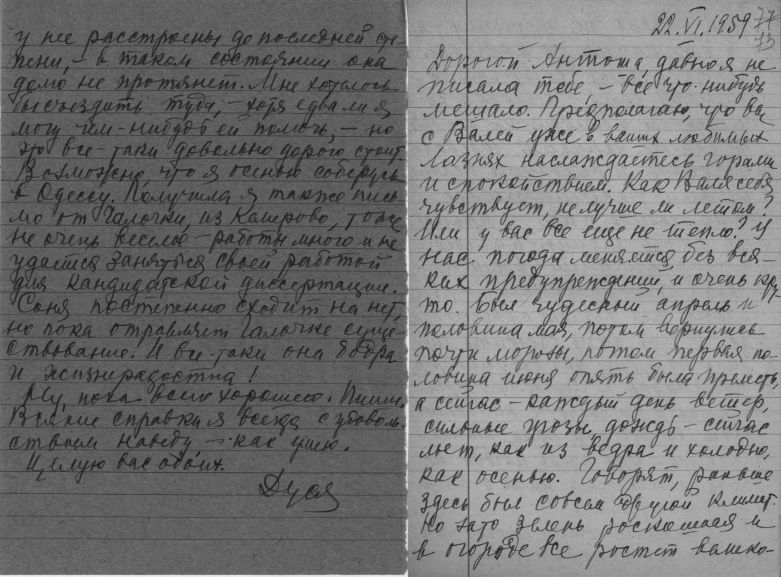 22.VI.1959
Дорогой Антоша, давно я не
писала тебе – все что-нибудь
мешало. Предполагаю, что вы
с Валей уже в ваших любимых
Лазнях наслаждаетесь горами
и спокойствием. Как Валя себя
чувствует, не лучше ли летом?
Или у вас все еще не тепло? У
нас погода меняется без вся-
ких предупреждений, и очень кру-
то. Был чудесный апрель и
половина мая, потом вернулись
почти морозы, потом первая по-
ловина июня опять была прелесть,
а сейчас – каждый день ветер,
сильные грозы, дождь – сейчас
льет, как из ведра и холодно,
как осенью. Говорят, раньше
здесь был совсем другой климат.
Но зато зелень роскошная и
в огороде все растет велико-
у нее расстроены до последней сте-
пени, – в таком состоянии она
долго не протянет. Мне хотелось
бы съездить туда, – хотя едва ли я
могу чем-нибудь ей помочь, – но
это все-таки довольно дорого стоит.
Возможно, что я осенью соберусь
в Одессу. Получила я также пись-
мо от Галочки, из Кемерово, тоже
не очень веселое – работы много и не
удается заняться своей работой
для кандидатской диссертации.
Соня постепенно сходит на нет,
но пока отравляет Галочке суще-
ствование. И все-таки она бодра
и жизнерадостна!
Ну, пока всего хорошего. Пиши.
Всякие справки я всегда с удоволь-
ствием наведу – как умею.
Целую вас обоих.
Дуся